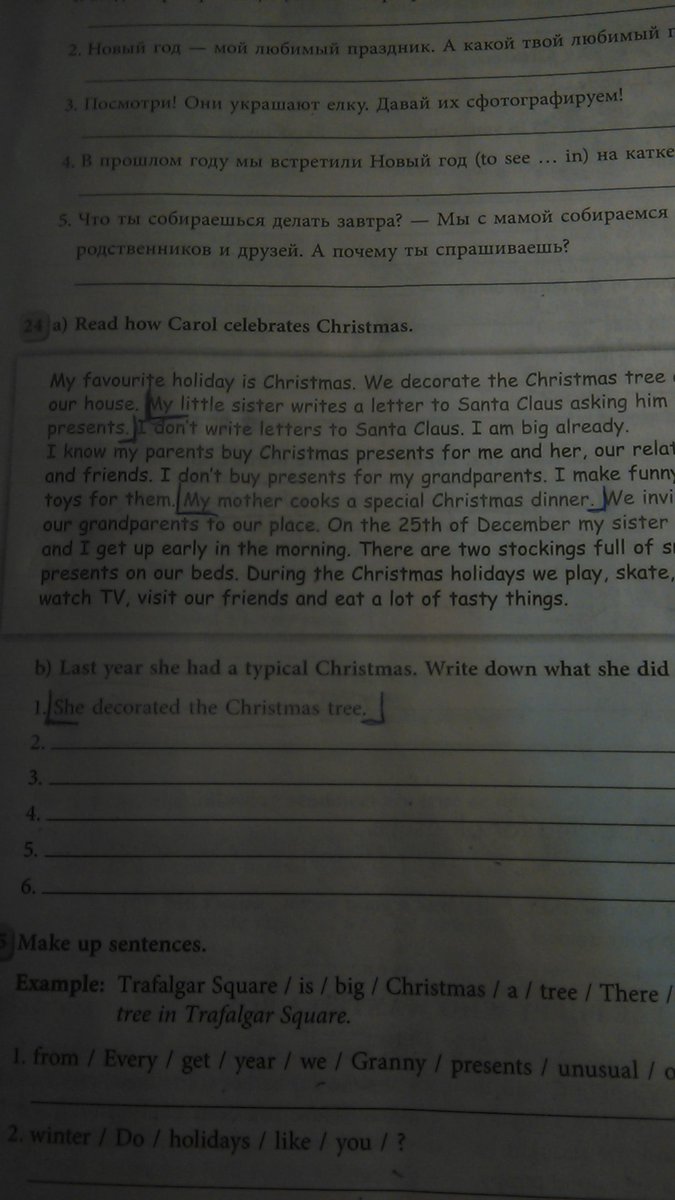 2. Новый год — мой любимый праздник. А какой твой любимый
3. Посмотри! Они украшают елку. Давай их сфотографируем!
4. В прошлом году мы встретили Новый год (to see ... in) на катке
5. Что ты собираешься делать завтра? — Мы с мамой собираемся
родственников и друзей. А почему ты спрашиваешь?
24 a) Read how Carol celebrates Christmas.
My favourite holiday is Christmas. We decorate the Christmas tree
our house. My little sister writes a letter to Santa Claus asking him
presents. I don't write letters to Santa Claus. I am big already.
I know my parents buy Christmas presents for me and her, our
and friends. I don't buy presents for my grandparents. I make funny
toys for them. My mother cooks a special Christmas dinner. We
our grandparents to our place. On the 25th of December my sister
and I get up early in the morning. There are two stockings full of
presents on our beds. During the Christmas holidays we play, skate,
watch TV, visit our friends and eat a lot of tasty things.
b) Last year she had a typical Christmas. Write down what she did
1. She decorated the Christmas tree.
2.
3.
4.
5.
6.
5 Make up sentences.
Example: Trafalgar Square / is / big / Christmas / a / tree / There /
tree in Trafalgar Square.
1. from / Every / get / year / we / Granny / presents / unusual /
2. winter / Do / holidays / like / you / ?